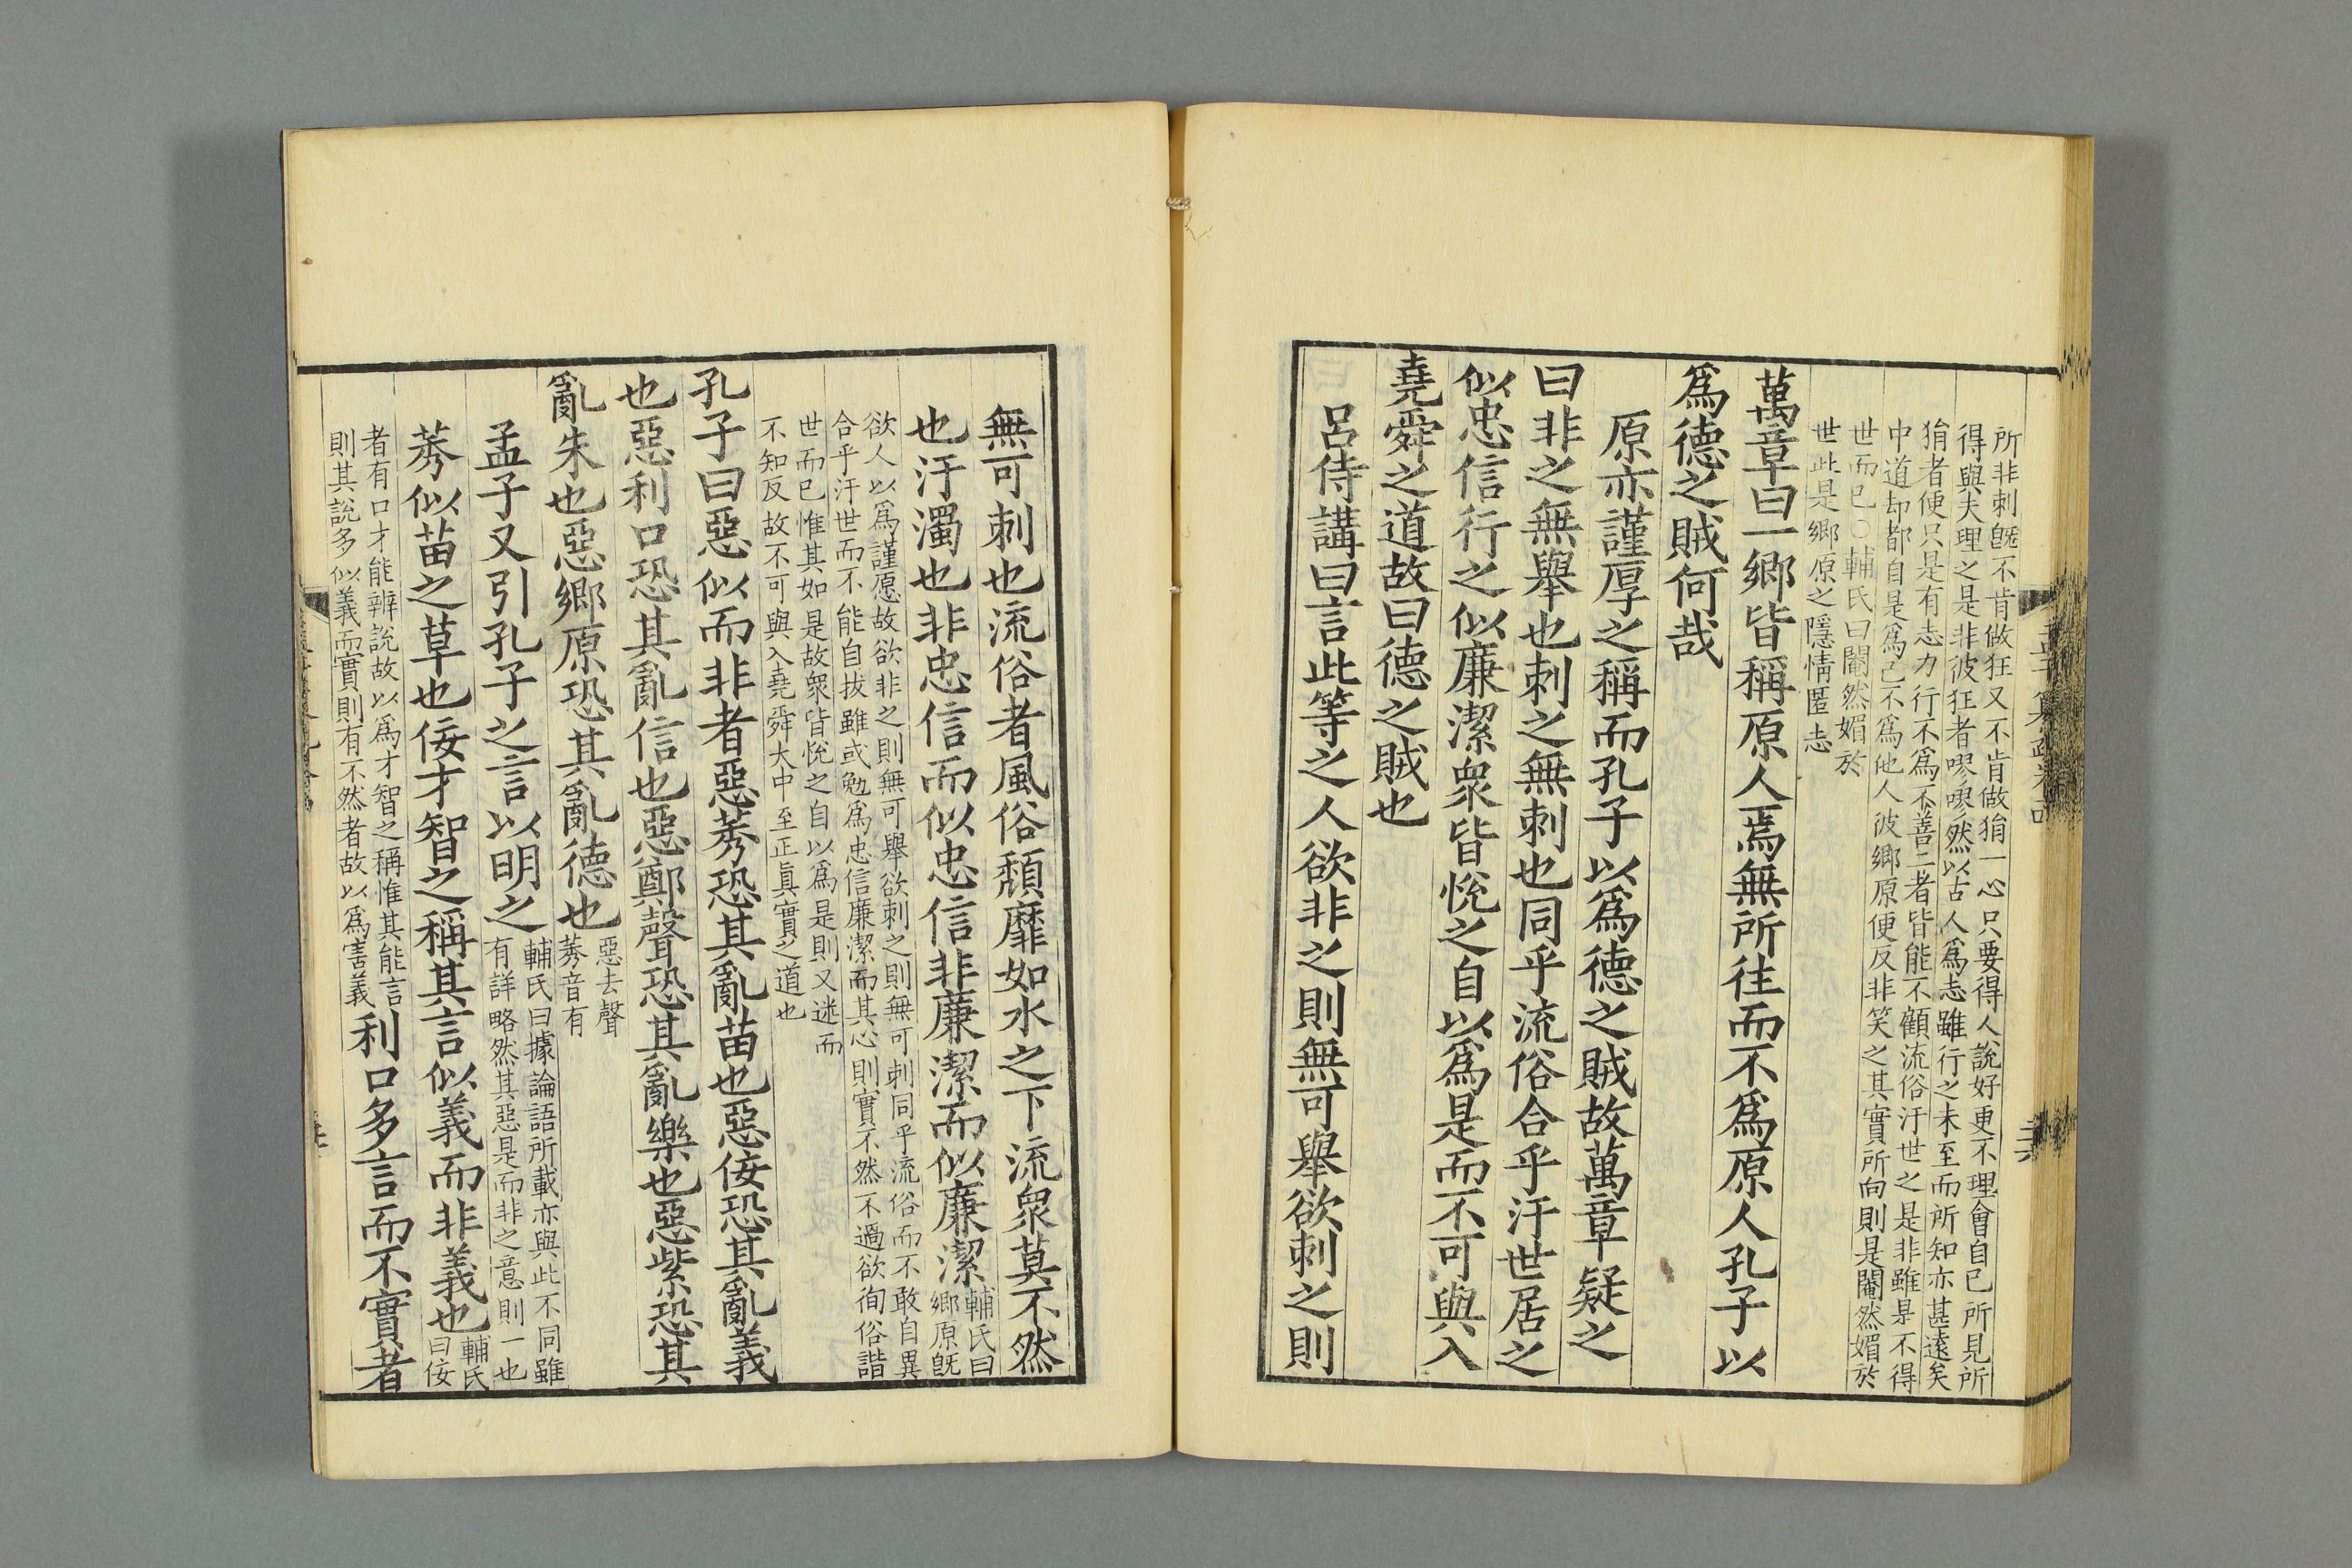 所非刺旣不肯做狂又不肯做狷一心只要得人說好更不理會自已所見所
得與夫理之是非彼狂者嘐嘐然以古人爲志雖行之未至而所知亦甚遠矣
狷者便只是有志力行不爲不善二者皆能不顧流俗汙世之是非雖是不得
中道却都自是爲已不爲他人彼鄉原便反非笑之其實所向則是閹然媚於
世而已○輔氏曰閹然媚於
世此是鄉原之隱情匿志
萬章曰一鄉皆稱原人焉無所往而不爲原人孔子以
爲德之賊何哉
原亦謹厚之稱而孔子以爲德之賊故萬章疑之
曰非之無舉也刺之無刺也同乎流俗合乎汙世居之
似忠信行之似廉潔衆皆悅之自以爲是而不可與入
堯舜之道故曰德之賊也
呂侍講曰言此等之人欲非之則無可舉欲刺之則
無可刺也流俗者風俗頹靡如水之下流衆莫不然
也汙濁也非忠信而似忠信非廉潔而似廉潔
輔氏曰
鄉原旣
欲人以爲謹愿故欲非之則無可舉欲刺之則無可刺同乎流俗而不敢自異
合乎汙世而不能自拔雖或勉爲忠信廉潔而其心則實不然不過欲徇俗諧
世而已惟其如是故衆皆悅之自以爲是則又迷而
不知反故不可與入堯舜大中至正眞實之道也
孔子曰惡似而非者惡莠恐其亂苗也惡佞恐其亂義
也惡利口恐其亂信也惡鄭聲恐其亂樂也惡紫恐其
亂朱也惡鄉原恐其亂德也
惡去聲
莠音有
孟子又引孔子之言以明之
輔氏曰據論語所載亦與此不同雖
有詳略然其惡是而非之意則一也
莠似苗之草也佞才智之稱其言似義而非義也
輔氏
曰佞
者有口才能辨說故以爲才智之稱惟其能言
則其說多似義而實則有不然者故以爲害義
利口多言而不實者